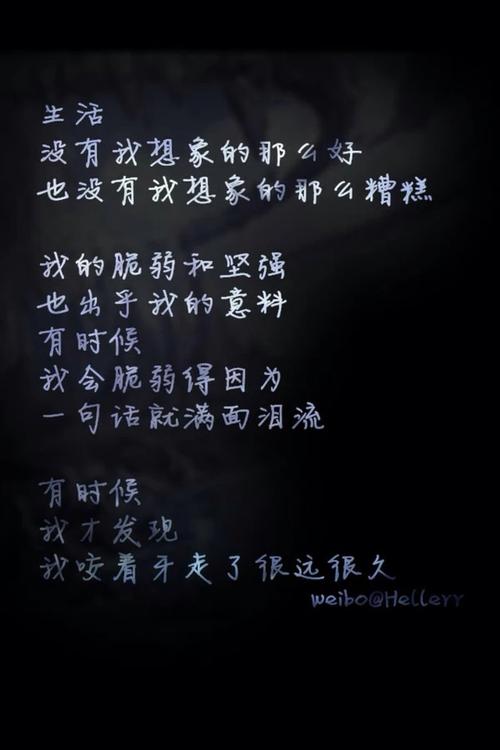 生活
没有我想象的那么好
也没有我想象的那么糟糕
我的脆弱和坚强
也出乎我的意料
有时候
我会脆弱得因为
一句话就满面泪流
有时候
我才发现
我咬着牙走了很远很久
weibo@Hellerr